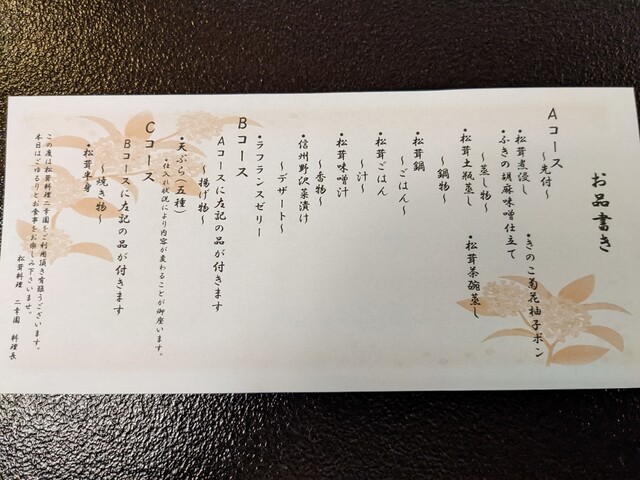 お品書き
Aコース
~先付~
・松茸煮浸し ・きのこ菊花柚子ポン
・ふきの胡麻味噌仕立て
~蒸し物~
・松茸土瓶蒸し ・松茸茶碗蒸し
~鍋物~
・松茸鍋
~ごはん~
・松茸ごはん
~汁~
・松茸味噌汁
~香物~
・信州野沢菜漬け
~デザート~
・ラフランスゼリー
Bコース
Aコースに左記の品が付きます
~揚げ物~
・天ぷら(五種)
・仕入れ状況により内容が変わることが御座います。
Cコース
Bコースに左記の品が付きます
~焼き物~
・松茸半身
この度は松茸料理二幸園をご利用頂き有難うございます。
本日はごゆるりとお食事をお楽しみ下さいませ。
松茸料理 二幸園 料理長